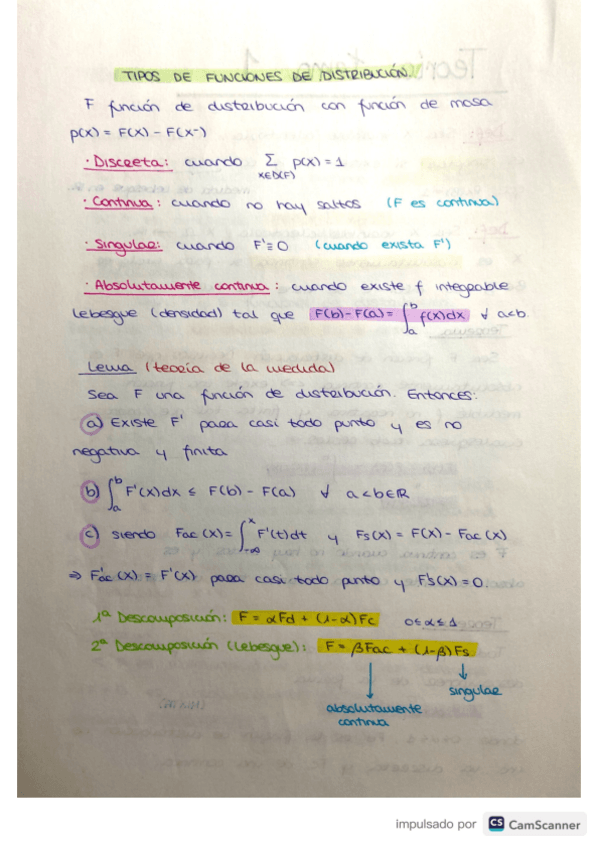 TIPOS DE FUNCIONES DE DISTRIBUCIÓN.
F función de distribución con función de masa
p(x) = F(x) - F(x-)
· Discreta: cuando Σ p(x) = 1
x∈D(F)
· Continua: cuando no hay saltos (F es continua)
· Singular: cuando F' ≡ 0 (cuando exista F')
· Absolutamente continua: cuando existe f integrable
Lebesgue (densidad) tal que F(b) - F(a) = ∫_a^b f(x)dx ∀ a<b.
Lema (teoría de la medida)
Sea F una función de distribución. Entonces:
a) Existe F' para casi todo punto y es no
negativa y finita
b) ∫_a^b F'(x)dx ≤ F(b) - F(a) ∀ a<b∈R
c) siendo Fac(x) = ∫_-∞^x F'(t)dt y Fs(x) = F(x) - Fac(x)
⇒ F'ac(x) = F'(x) para casi todo punto y F's(x) = 0.
1ª Descomposición: F = αFd + (1-α)Fc 0≤α≤1
2ª Descomposición (Lebesgue): F = βFac + (1-β)Fs
singular
absolutamente
continua
impulsado por CS CamScanner